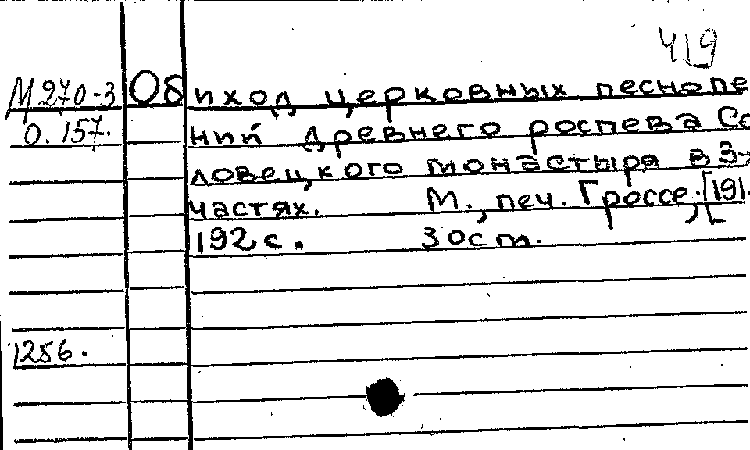 419
М 270-3 Обиход церковных песнопе
0.157. ний древнего роспева Со
ловецкого монастыря в 3-х
частях. М., печ. Гроссе, [191.
192 с. 30см.
1256.